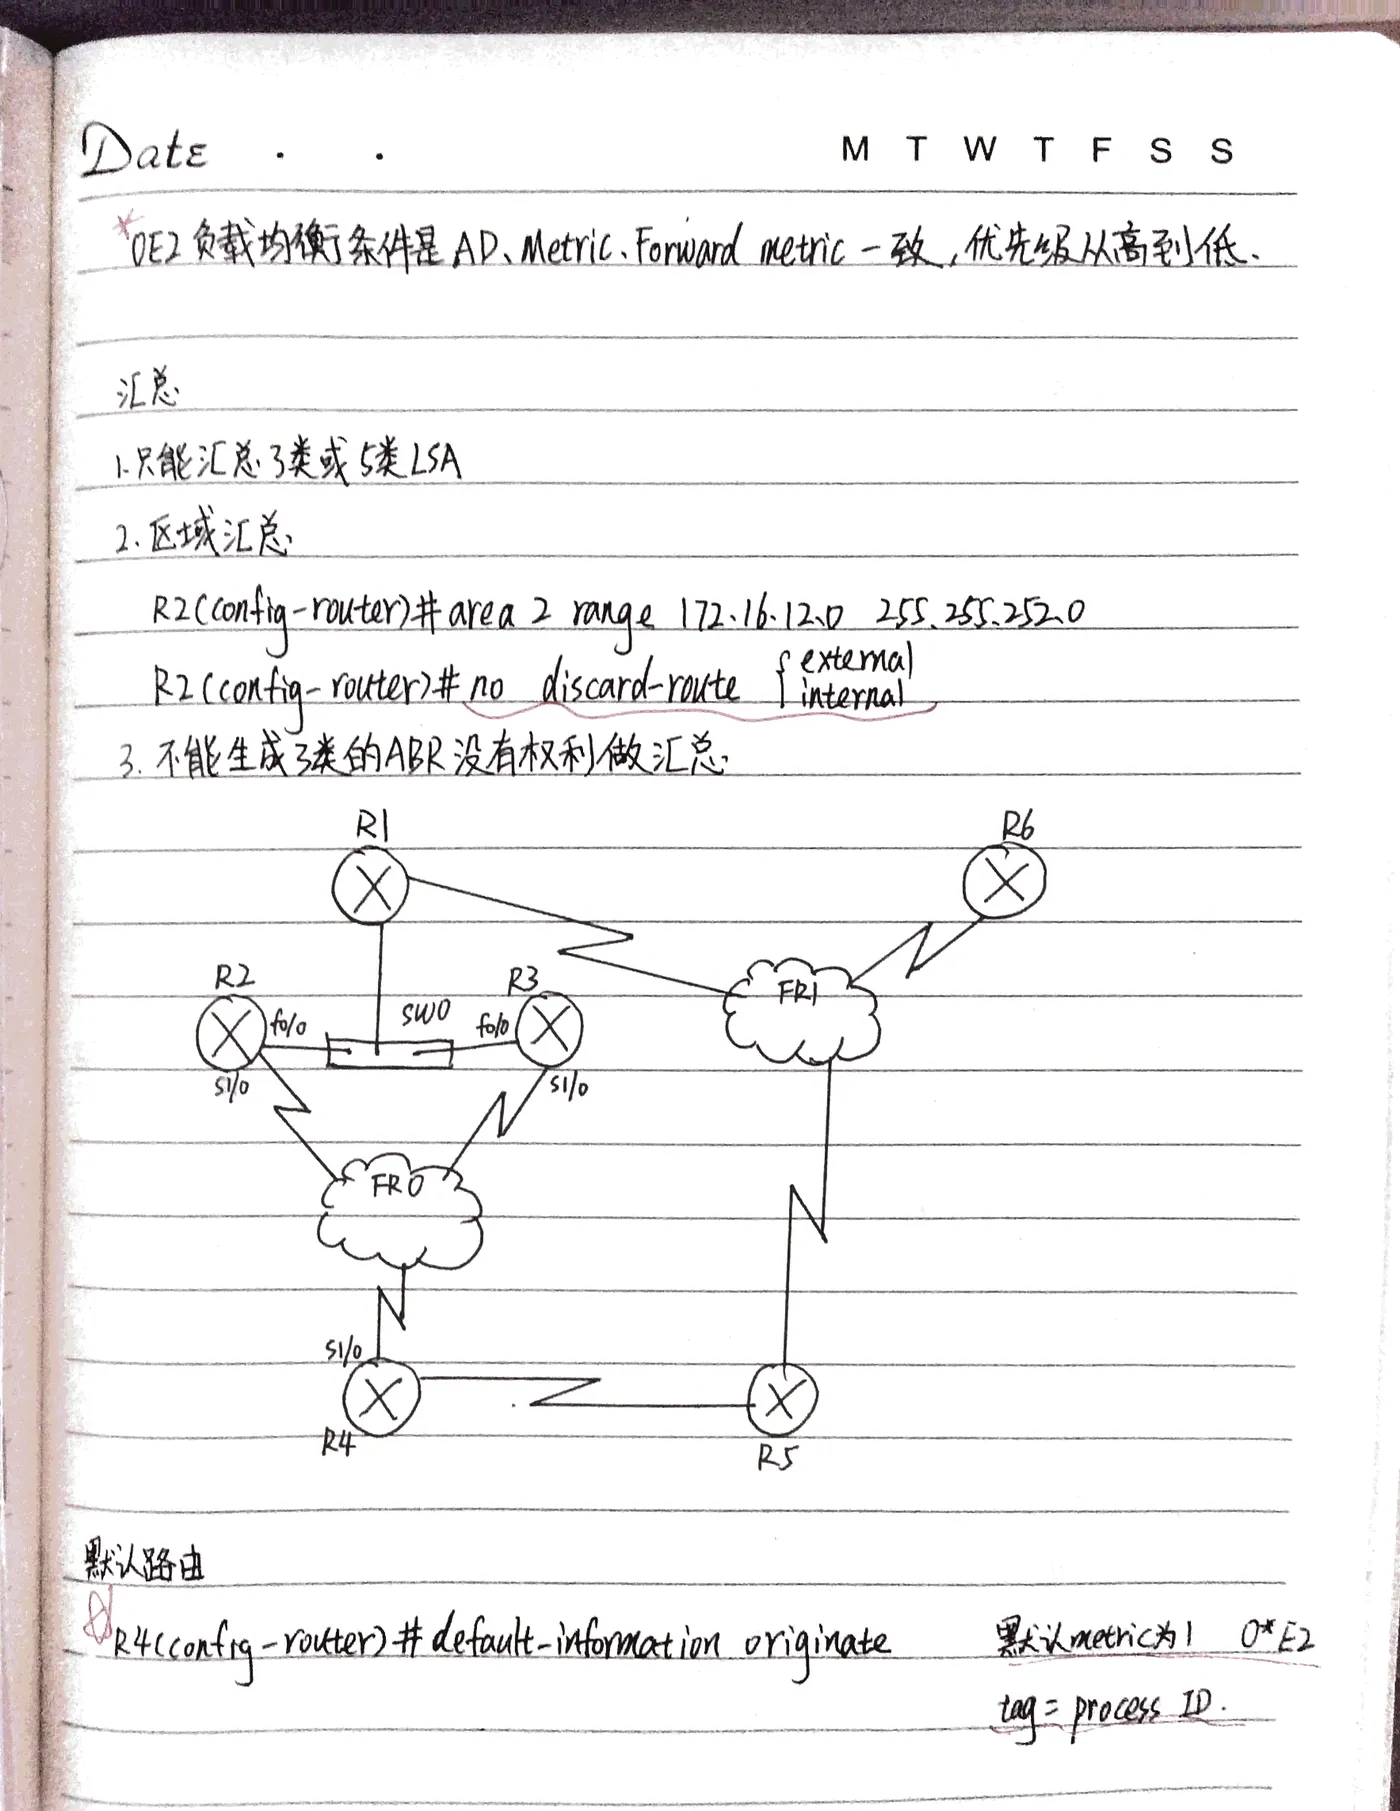 Date . .
M T W T F S S
*OE2负载均衡条件是AD、Metric、Forward metric一致,优先级从高到低.
汇总
1.只能汇总3类或5类LSA
2.区域汇总
R2(config-router)# area 2 range 172.16.12.0 255.255.252.0
R2(config-router)# no discard-route { external
internal
3.不能生成3类的ABR没有权利做汇总
R1
R6
R2
R3
FR1
f0/0
SW0
f0/0
S1/0
S1/0
FR0
S1/0
R4
R5
默认路由
R4(config-router)# default-information originate
默认metric为1 O*E2
tag = process ID.